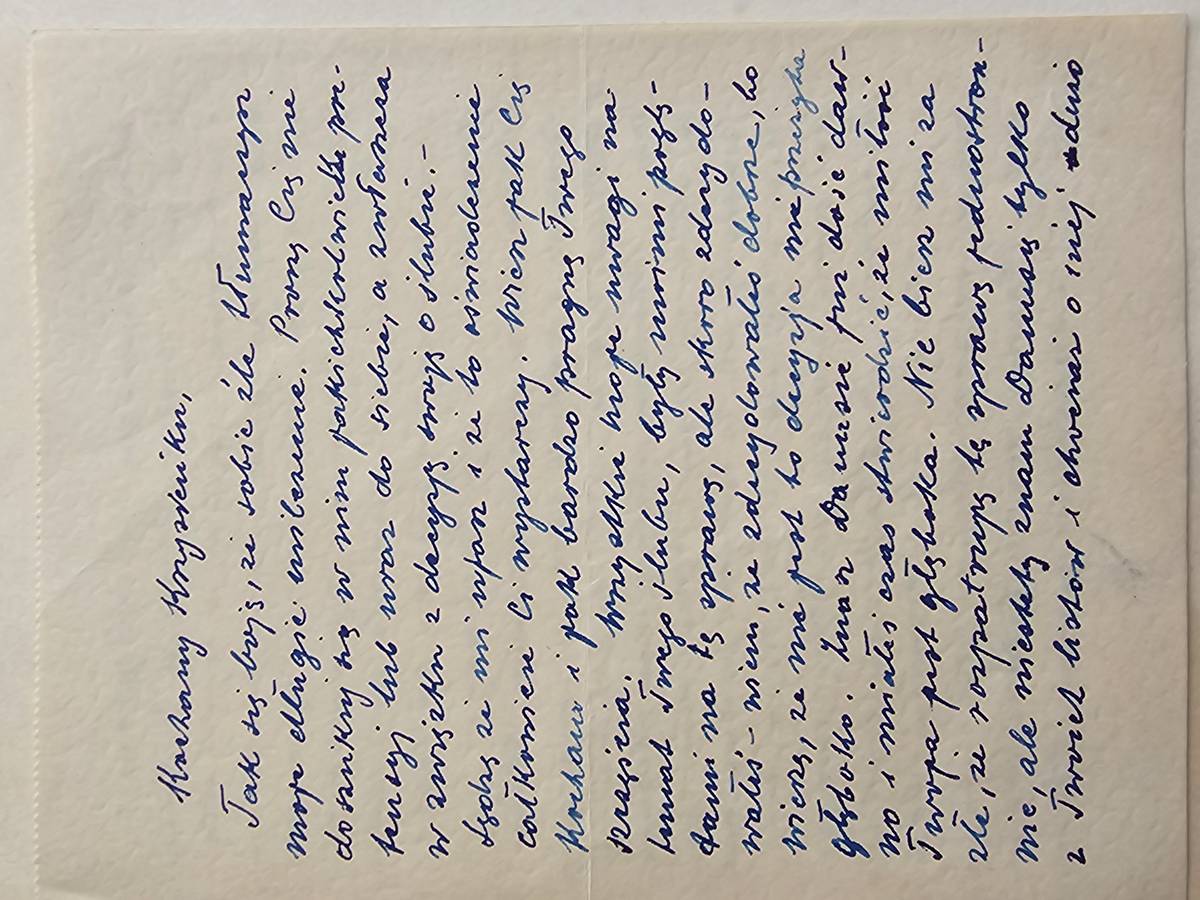 Kochany Krzysieńku,
Tak się boję, że sobie źle tłumaczysz
moje długie milczenie. Proszę Cię nie
doszukuj się w nim jakichkolwiek pre-
tensji lub uraz do siebie, a zwłaszcza
w związku z decyzją swoją o ślubie.-
Sądzę że mi ufasz i że to oświadczenie
całkowicie Ci wystarczy. Wiesz jak Cię
kocham i jak bardzo pragnę Twego
szczęścia. Wszystkie moje uwagi na
temat Twego ślubu, były moimi poglą-
dami na tę sprawę, ale skoro zdecydo-
wałeś - wiem, że zdecydowałeś dobrze, bo
wierzę, że nie jest to decyzja nie przemyślana
głęboko. Znasz Danusię już dość daw-
no i miałeś czas stwierdzić, że miłość
Twoja jest głęboka. Nie bierz mi za
złe, że rozpatruję tę sprawę jednostron-
nie, ale niestety znam Danusię tylko
z Twoich listów i chociaż o niej dużo